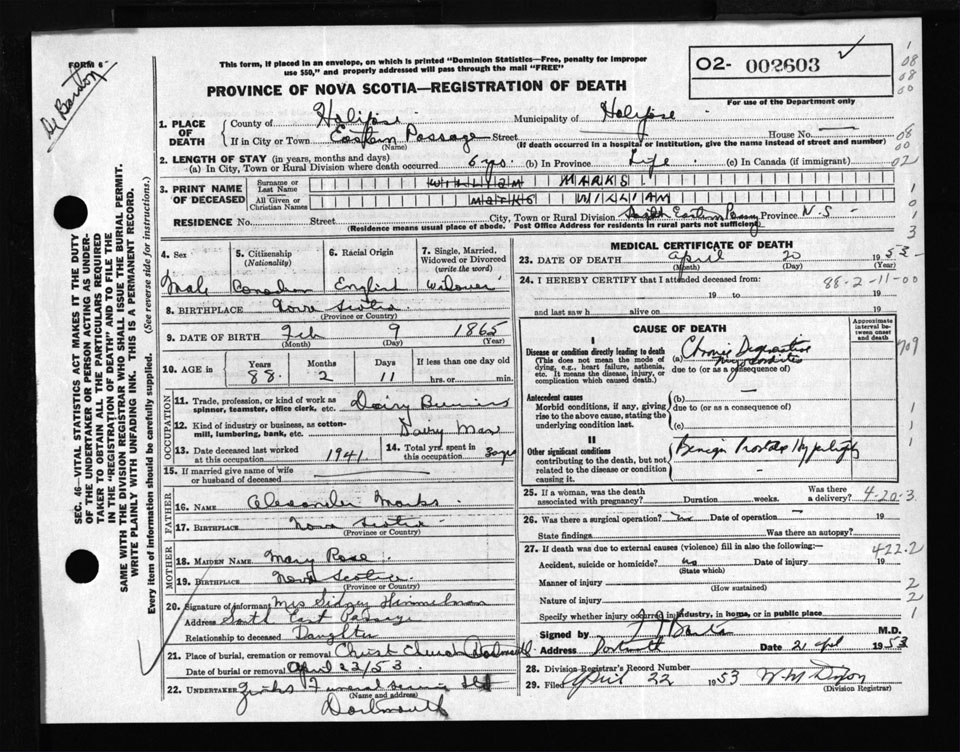 FORM 6
This form, if placed in an envelope, on which is printed "Dominion Statistics—Free, penalty for improper
use $50," and properly addressed will pass through the mail "FREE"
O2- 002603
PROVINCE OF NOVA SCOTIA—REGISTRATION OF DEATH
For use of the Department only
1. PLACE OF DEATH
County of Halifax Municipality of Halifax
If in City or Town Eastern Passage Street House No. —
(Name) (If death occurred in a hospital or institution, give the name instead of street and number)
2. LENGTH OF STAY (in years, months and days)
(a) In City, Town or Rural Division where death occurred 6 yrs. (b) In Province Life (c) In Canada (if immigrant)
3. PRINT NAME OF DECEASED
Surname or Last Name WILLIAM MARKS
All Given or Christian Names MARKS WILLIAM
RESIDENCE No. Street City, Town or Rural Division South Eastern Passage Province N-S-
(Residence means usual place of abode. Post Office Address for residents in rural parts not sufficient)
4. Sex
Male
5. Citizenship
(Nationality)
Canadian
6. Racial Origin
English
7. Single, Married, Widowed or Divorced
(write the word)
Widower
8. BIRTHPLACE Nova Scotia
(Province or Country)
9. DATE OF BIRTH Feb 9 1865
(Month) (Day) (Year)
10. AGE in Years Months Days If less than one day old
88 2 11 hrs. or min.
OCCUPATION
11. Trade, profession, or kind of work as
spinner, teamster, office clerk, etc. Dairy Business
12. Kind of industry or business, as cotton-
mill, lumbering, bank, etc. Dairy Man
13. Date deceased last worked
at this occupation 1941
14. Total yrs. spent in
this occupation 30 yrs
15. If married give name of wife
or husband of deceased
FATHER
16. Name Alexander Marks
17. Birthplace Nova Scotia
(Province or Country)
MOTHER
18. MAIDEN NAME Mary Rose
19. BIRTHPLACE Nova Scotia
(Province or Country)
20. Signature of informant Mrs Sidney Himmelman
Address South East Passage
Relationship to deceased Daughter
21. Place of burial, cremation or removal Christ Church Dartmouth
Date of burial or removal April 22/53
22. UNDERTAKER Zinks Funeral Service Ltd
(Name and address)
Dartmouth
MEDICAL CERTIFICATE OF DEATH
23. DATE OF DEATH April 20 1953
(Month) (Day) (Year)
24. I HEREBY CERTIFY that I attended deceased from:
88-2-11-00
19 to 19
and last saw h alive on 19
CAUSE OF DEATH
Approximate interval between onset and death
I
Disease or condition directly leading to death
(This does not mean the mode of
dying, e.g., heart failure, asthenia,
etc. It means the disease, injury, or
complication which caused death.)
(a) Chronic Degenerative Myocarditis
due to (or as a consequence of)
Antecedent causes
Morbid conditions, if any, giving
rise to the above cause, stating the
underlying condition last.
(b) —
due to (or as a consequence of)
(c)
II
Other significant conditions
contributing to the death, but not
related to the disease or condition
causing it.
Benign Prostate Hypertrophy
25. If a woman, was the death
associated with pregnancy? Duration weeks. Was there a delivery? 4-20-3
26. Was there a surgical operation? no Date of operation — 19
State findings Was there an autopsy?
27. If death was due to external causes (violence) fill in also the following:— 422.2
Accident, suicide or homicide? no Date of injury 19
(State which)
Manner of injury
(How sustained)
Nature of injury
Specify whether injury occurred in industry, in home, or in public place
Signed by M.D.
Address Dartmouth Date 21 Apl 1953
28. Division Registrar's Record Number
29. Filed April 22 1953 W. M. Dixon
(Division Registrar)
SEC. 46—VITAL STATISTICS ACT MAKES IT THE DUTY
OF THE UNDERTAKER OR PERSON ACTING AS UNDER-
TAKER TO OBTAIN ALL THE PARTICULARS REQUIRED
IN THE "REGISTRATION OF DEATH" AND TO FILE THE
SAME WITH THE DIVISION REGISTRAR WHO SHALL ISSUE THE BURIAL PERMIT.
WRITE PLAINLY WITH UNFADING INK. THIS IS A PERMANENT RECORD.
Every item of information should be carefully supplied. (See reverse side for instructions.)